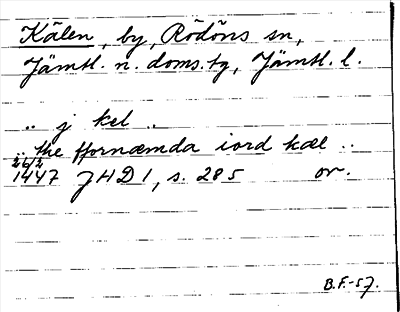 Kälen, by, Rödöns sn,
Jämtl. n. doms. tg, Jämtl. l.
.. j kel ..
.. the ffornæmda iord kæl ..
26/2
1447 JHD 1, s. 285 or.
B.F.-57.